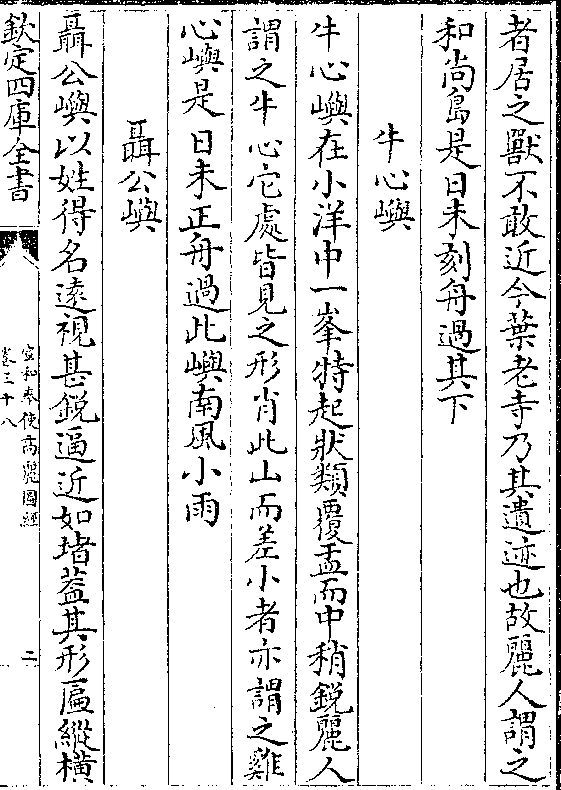 者居之獸不敢近今葉老寺乃其遺迹也故麗人謂之
和尚島是日未刻舟過其下
牛心嶼
牛心嶼在小洋中一峯特起狀類覆盂而中稍鋭麗人
謂之牛心它處皆見之形肖此山而差小者亦謂之雞
心嶼是日未正舟過此嶼南風小雨
聶公嶼
聶公嶼以姓得名逺視甚鋭逼近如堵葢其形匾縱横
欽定四庫全書
宣和奉使高麗圖經
卷三十八
二